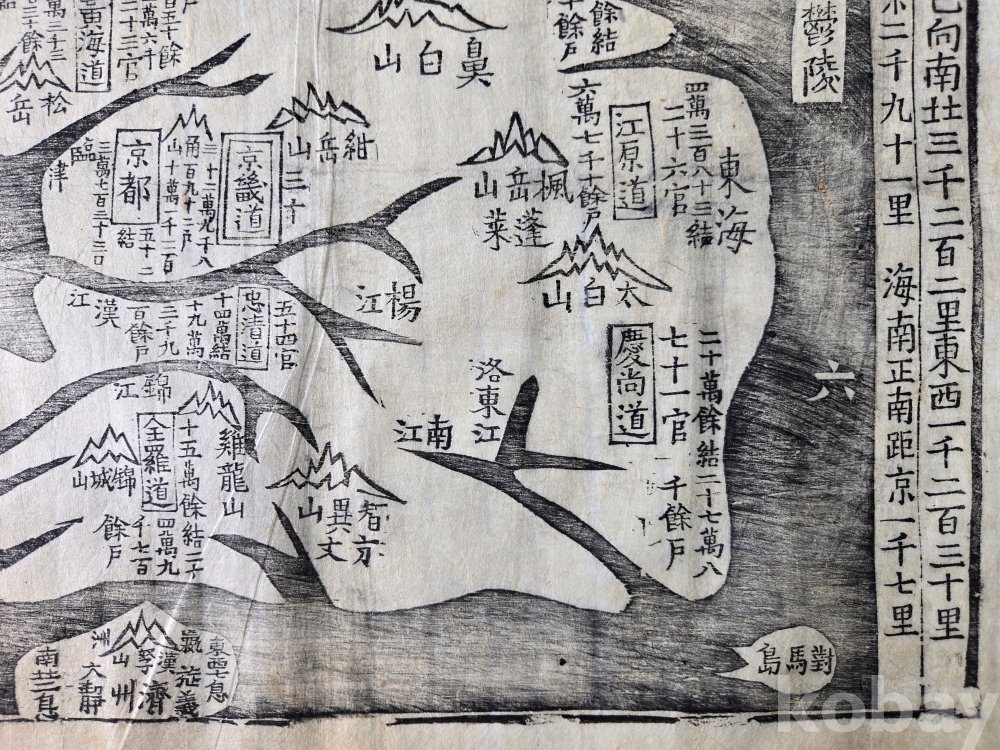 向南北三千二百二里東西一千二百三十里
二千九十一里 海南正南距京一千七里
鬱陵
六
對馬島
東海
江原道
四萬三百八十三結
二十六官
六萬七千十餘戶
餘結
餘戶
臭白山
楓岳山
蓬萊
太白山
慶尚道
二十萬餘結二十七萬八
七十一官
千餘戶
洛東江
南江
楊江
紺岳山
京畿道
三十
京都
三萬七百三十三口
臨津
松岳
黃海道
二十三官
漢江
忠清道
五十四官
十四萬結
十九萬
三千九
百餘戶
錦江
雞龍山
全羅道
十五萬餘結二十
四萬九
千七百
餘戶
錦城山
智異山
亦文
漢拏山
濟州
大靜
旌義
南北二息
東西七息
kobay